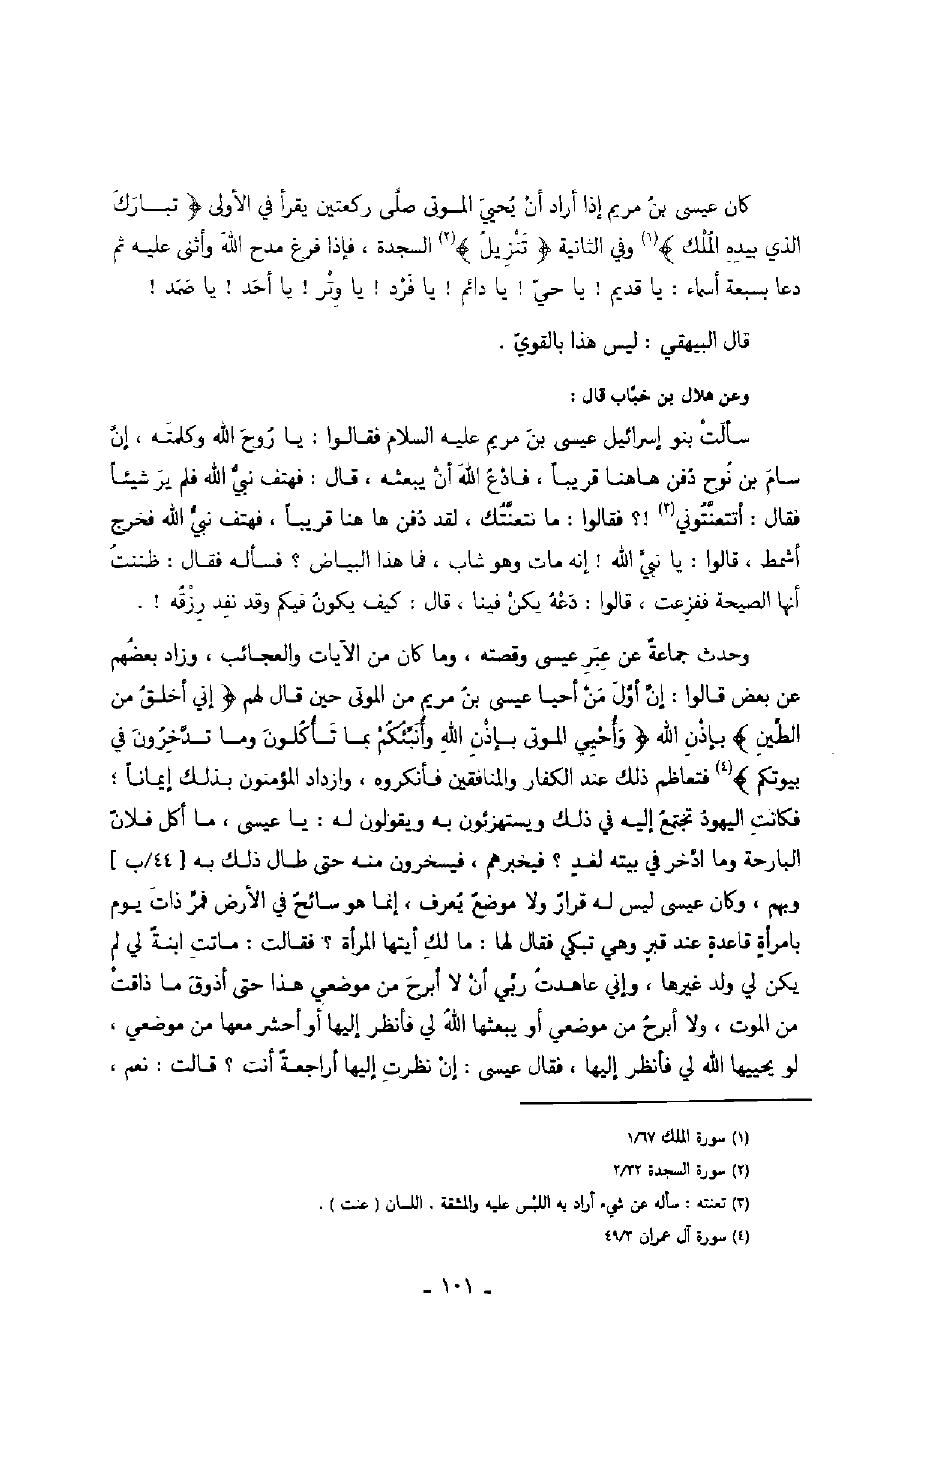 كان عيسى بنُ مريم إذا أراد أنْ يُحييَ المـوتى صلَّى ركعتين يقرأ في الأولى ﴿ تبـارَكَ
الذي بيدِهِ المُلْك ﴾(١) وفي الثانية ﴿ تَنْزيلُ ﴾(٢) السجدة ، فإذا فرغ مدح اللهَ وأثنى عليـه ثم
دعا بسبعة أسماء : يا قديم ! يا حيّ ! يا دائم ! يا فَرْد ! يا وِتْر ! يا أحَد ! يا صَمَد !
قال البيهقي : ليس هذا بالقويّ .
وعن هلال بن خبَّاب قال :
سـألتْ بنو إسرائيل عيسى بنَ مريم عليـه السلام فقـالوا : يـا رُوحَ الله وكلمتَـه ، إنَّ
سـامَ بن نُوح دُفن هـاهنـا قريبـاً ، فـادْعُ اللهَ أنْ يبعثـه ، قـال : فهتف نبيُّ الله فلم يرَ شيئـاً
فقال : أتتعنَّتوني(٣) !؟ فقالوا : ما نتعنَّتُك ، لقد دُفن ها هنا قريباً ، فهتف نبيُّ الله فخرج
أشمط ، قالوا : يا نبيَّ الله ! إنه مات وهو شاب ، فما هذا البيـاض ؟ فسـألـه فقـال : ظننتُ
أنها الصيحة ففزعت ، قالوا : دَعْهُ يكنْ فينا ، قال : كيف يكونُ فيكم وقد نفِد رِزْقُه ! .
وحدث جماعةٌ عن عِبَرِ عيسى وقصته ، وما كان من الآيات والعجـائب ، وزاد بعضُهم
عن بعض قـالوا : إنَّ أوَّلَ مَنْ أحيـا عيسى بنُ مريم من الموتى حين قـال لهم ﴿ إني أخلـقُ من
الطِّينِ ﴾ بـإذْنِ الله ﴿ وَأُحْيِي المـوتى بـإذْنِ اللهِ وأُنَبِّئُكُمْ بمـا تَـأكُلونَ ومـا تـدَّخِرُونَ في
بيوتِكم ﴾(٤) فتعاظم ذلك عند الكفار والمنافقين فـأنكروه ، وازداد المؤمنون بـذلـك إيمانـاً ؛
فكانتِ اليهودُ تجتمعُ إليـه في ذلـك ويستهزئون بـه ويقولون لـه : يـا عيسى ، مـا أكل فـلانٌ
البارحة وما ادَّخر في بيته لغدٍ ؟ فيخبرهم ، فيسخرون منـه حتى طـال ذلـك بـه [ ٤٤/ب ]
وبهم ، وكان عيسى ليس لـه قرارٌ ولا موضعٌ يُعرف ، إنما هو سائحٌ في الأرض فمرَّ ذاتَ يـوم
بامرأةٍ قاعدةٍ عند قبرٍ وهي تبكي فقال لها : ما لكِ أيتها المرأة ؟ فقـالت : مـاتتِ ابنـةٌ لي لم
يكن لي ولد غيرها ، وإني عاهدتُ ربِّي أنْ لا أبرحَ من موضعي هـذا حتى أذوقَ مـا ذاقتْ
من الموت ، ولا أبرحُ من موضعي أو يبعثها اللهُ لي فأنظر إليها أو أحشر معها من موضعي ،
لو يحييها الله لي فأنظر إليها ، فقال عيسى : إنْ نظرتِ إليها أراجعـةٌ أنت ؟ قـالت : نعم ،
(١) سورة الملك ١/٦٧
(٢) سورة السجدة ٢/٣٢
(٣) تعنته : سأله عن شيء أراد به اللبْس عليه والمشقة . اللسان ( عنت ) .
(٤) سورة آل عمران ٤٩/٣
- ١٠١ -